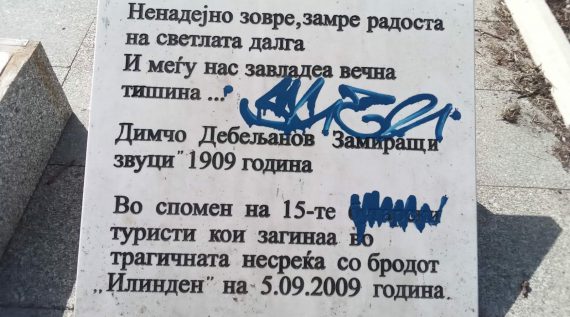 Ненадејно зовре, замре радоста
на светлата далга
И меѓу нас завладеа вечна
тишина ...
Димчо Дебељанов "Замиращи
звуци" 1909 година
Во спомен на 15-те
туристи кои загинаа во
трагичната несреќа со бродот
„Илинден" на 5.09.2009 година.